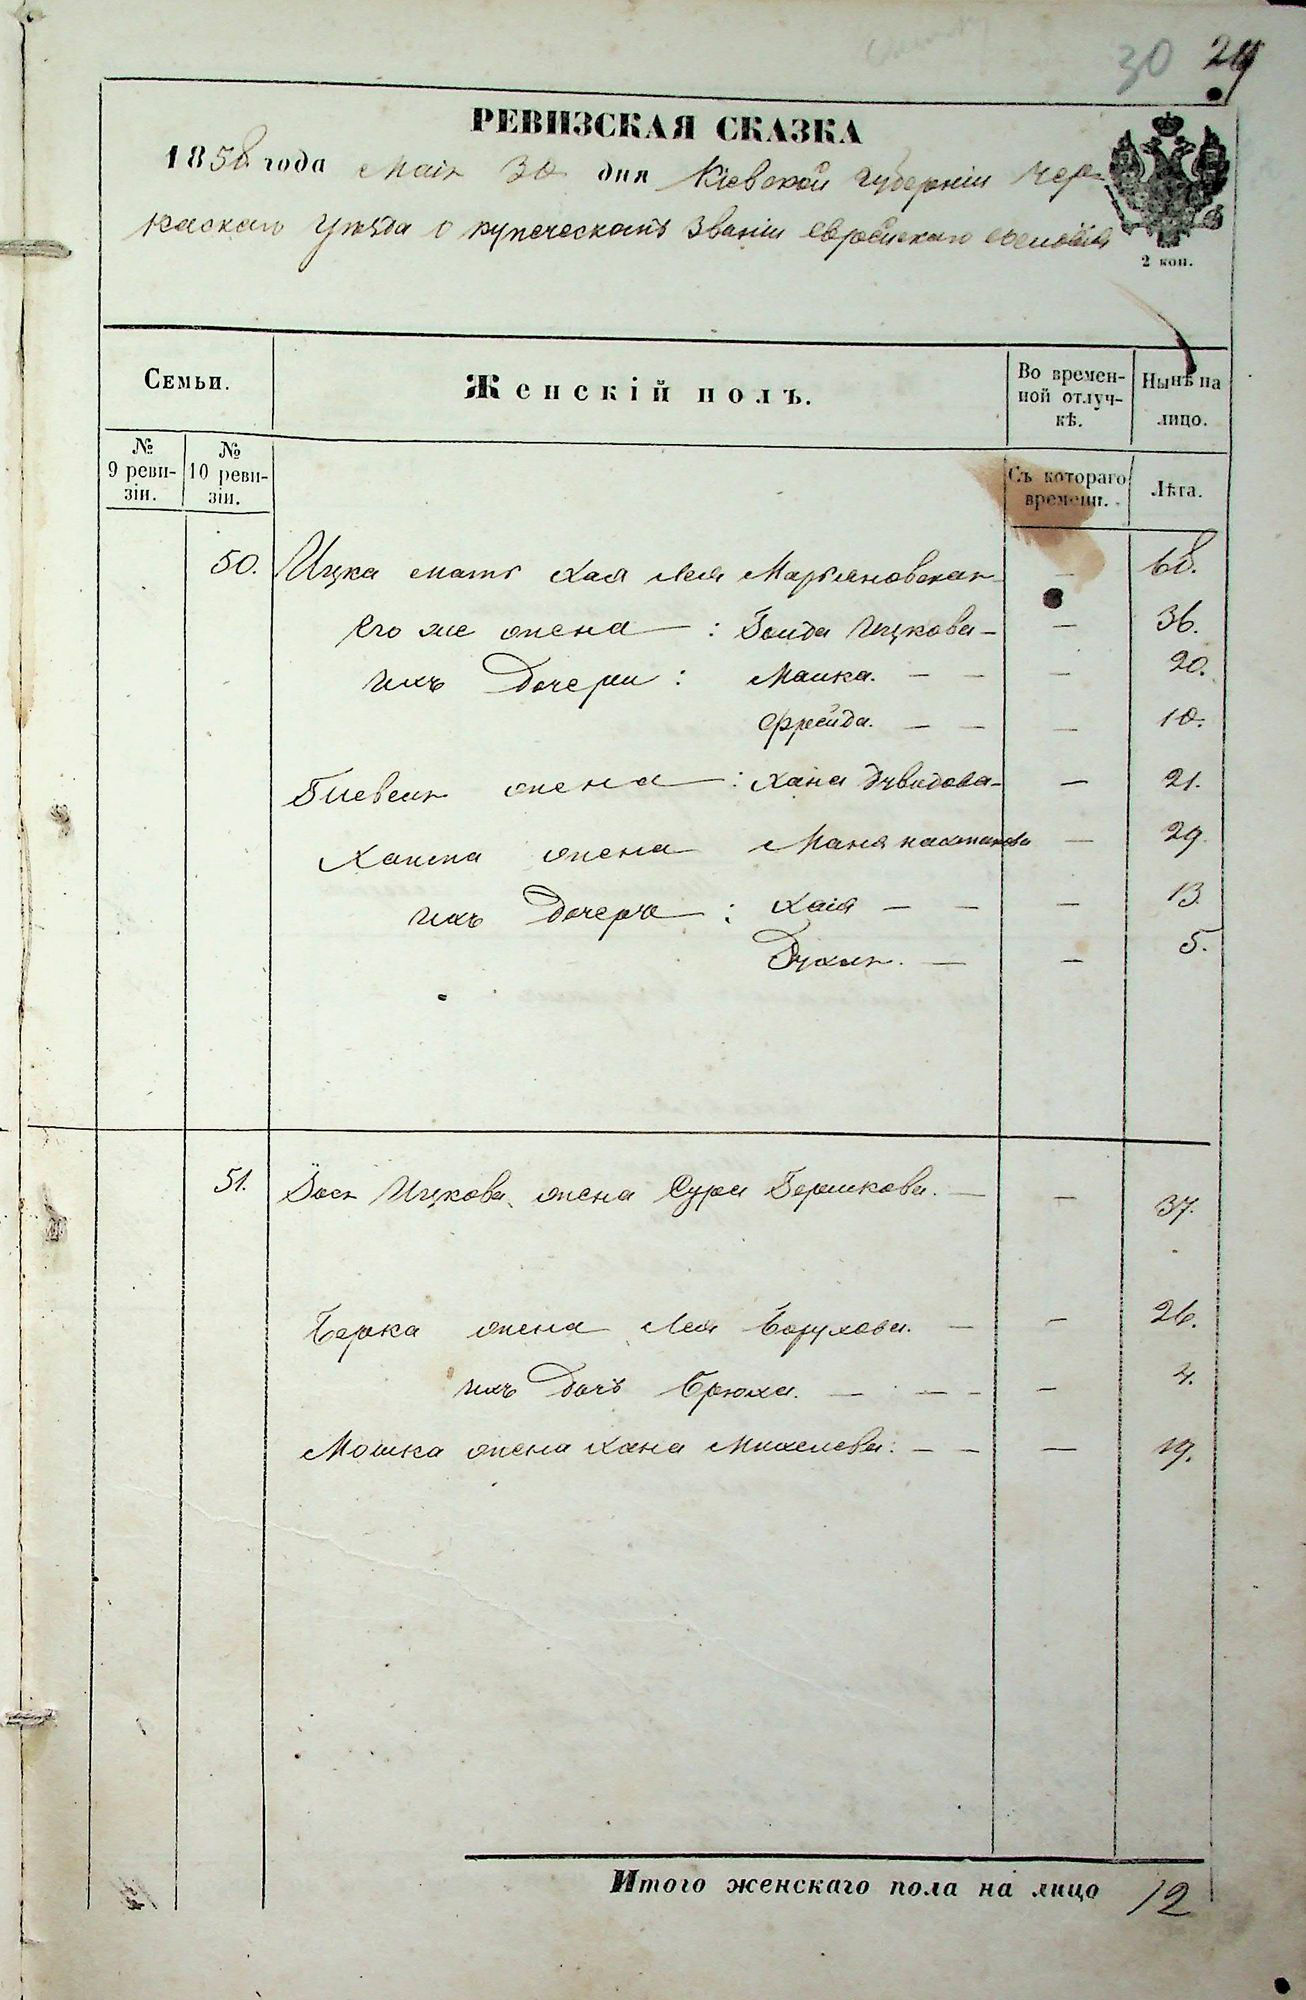 30 29
РЕВИЗСКАЯ СКАЗКА
1858 года Маія 30 дня Кіевской Губерніи Чер-
каскаго Уѣзда о купеческомъ званіи еврейскаго
2 коп.
Семьи.
Женскій полъ.
Во времен-
ной отлуч-
кѣ.
Нынѣ на
лицо.
№
9 реви-
зіи.
№
10 реви-
зіи.
Съ котораго
времени.
Лѣта.
50. Ицка мать Хая Лея Марьяновская — 68.
Его же жена : Ицкова — — 36.
ихъ Дочери : Малка. — — — 20.
Фрейда. — — — 10.
жена : Хана Дувидова — — 21.
жена Маня — 29.
ихъ Дочери : Хая — — — 13.
— — 5.
51. Ицкова жена Сура Гершкова. — — 37.
Берка жена Лея Борухова. — — 26.
ихъ Дочь Брюха. — — — — 4.
Мошка жена Хана Михелева. — — — 19.
Итого женскаго пола на лицо 12